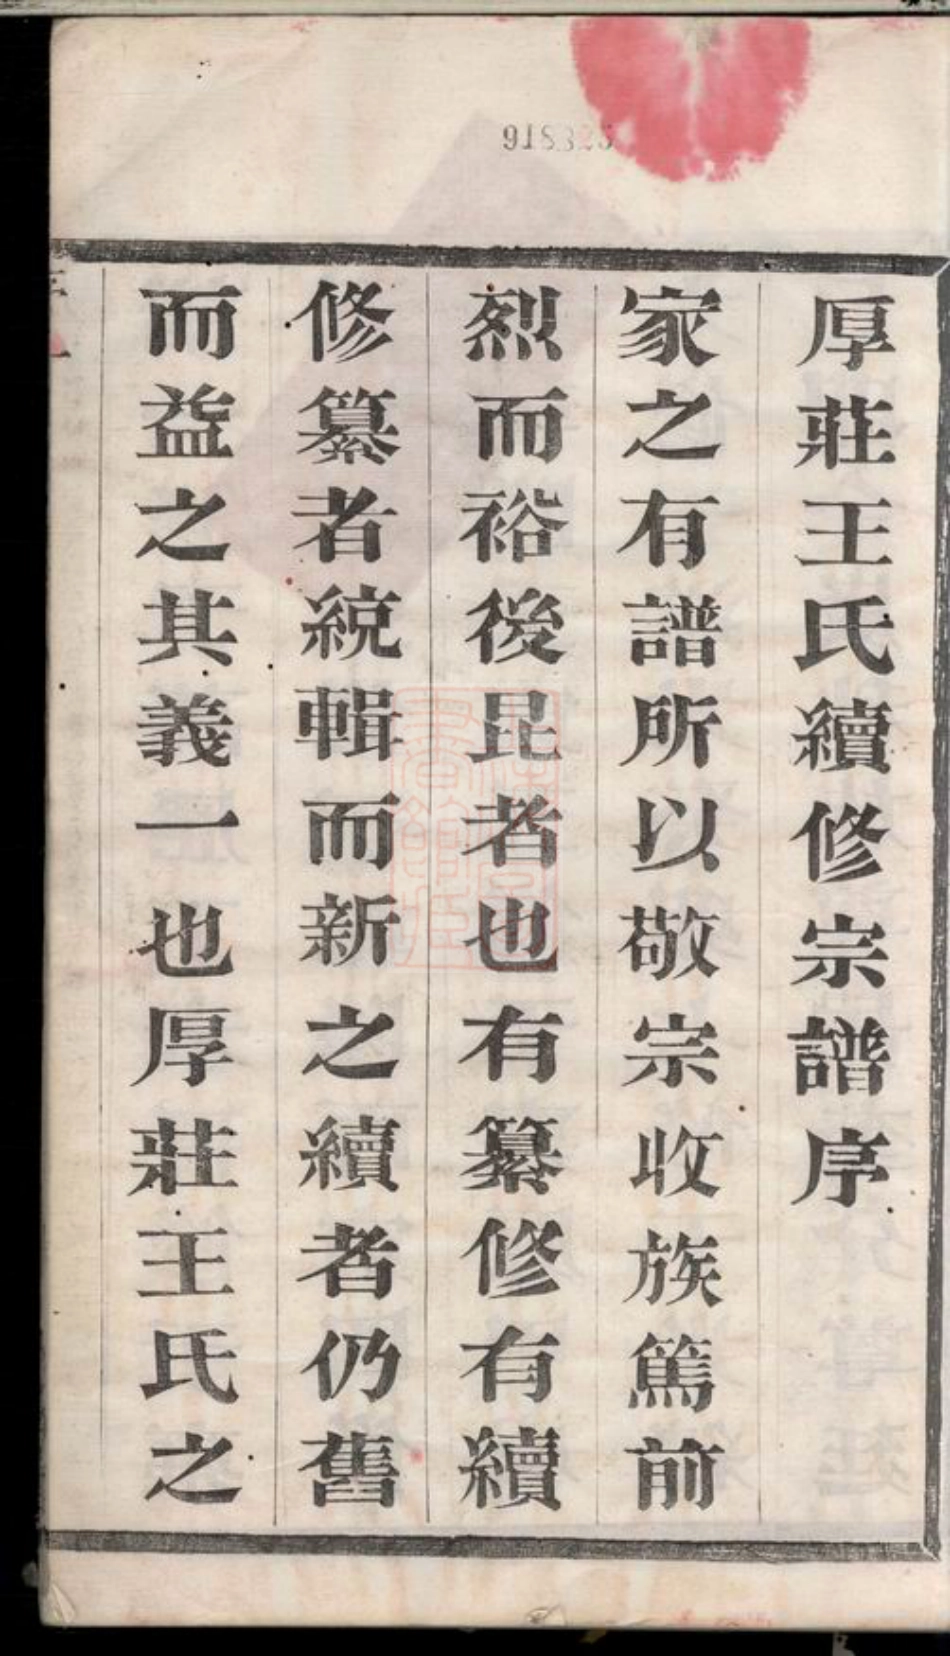 厚莊王氏續修宗譜序
家之有譜所以敬宗收族篤前
烈而裕後昆者也有纂修有續
修纂者統輯而新之續者仍舊
而益之其義一也厚莊王氏之